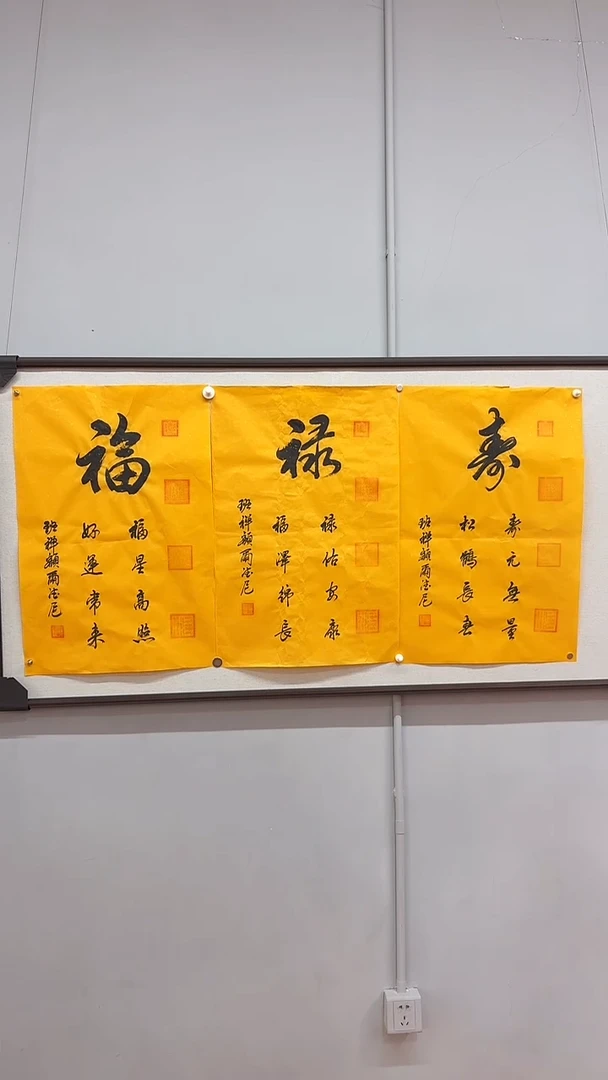 福
福星高照
好運常来
班禪額爾德尼
禄
禄佑安康
福澤綿長
班禪額爾德尼
寿
寿元無量
松鶴長春
班禪額爾德尼